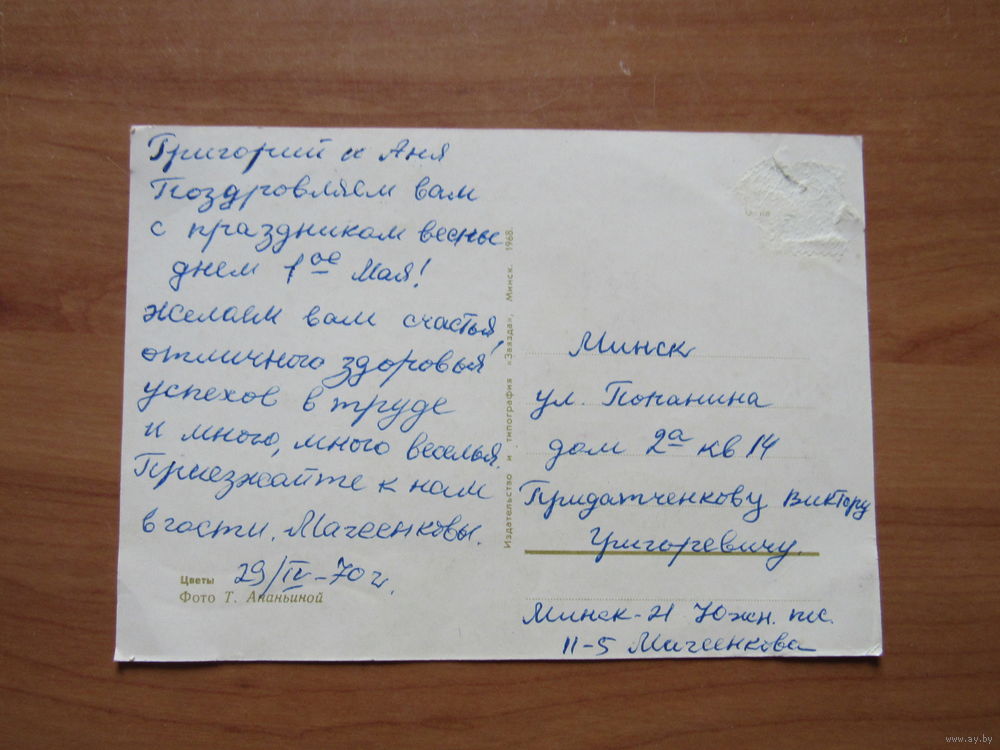 Григорий и Аня
Поздровляем вам
с праздником весны
днем 1ое Мая!
Желаем вам счастья,
отличного здоровья!
успехов в труде
и много, много веселья.
Приезжайте к нам
в гости. Магеенковы.
29/IV-70 г.
Цветы
Фото Т. Ананьиной
Издательство и типография «Звязда», Минск. 1968.
Минск
ул. Попанина
дом 2а кв 14
Придатченкову Виктору
Григоревичу.
Минск-21 Южн. пос.
11-5 Магеенкова
www.ay.by